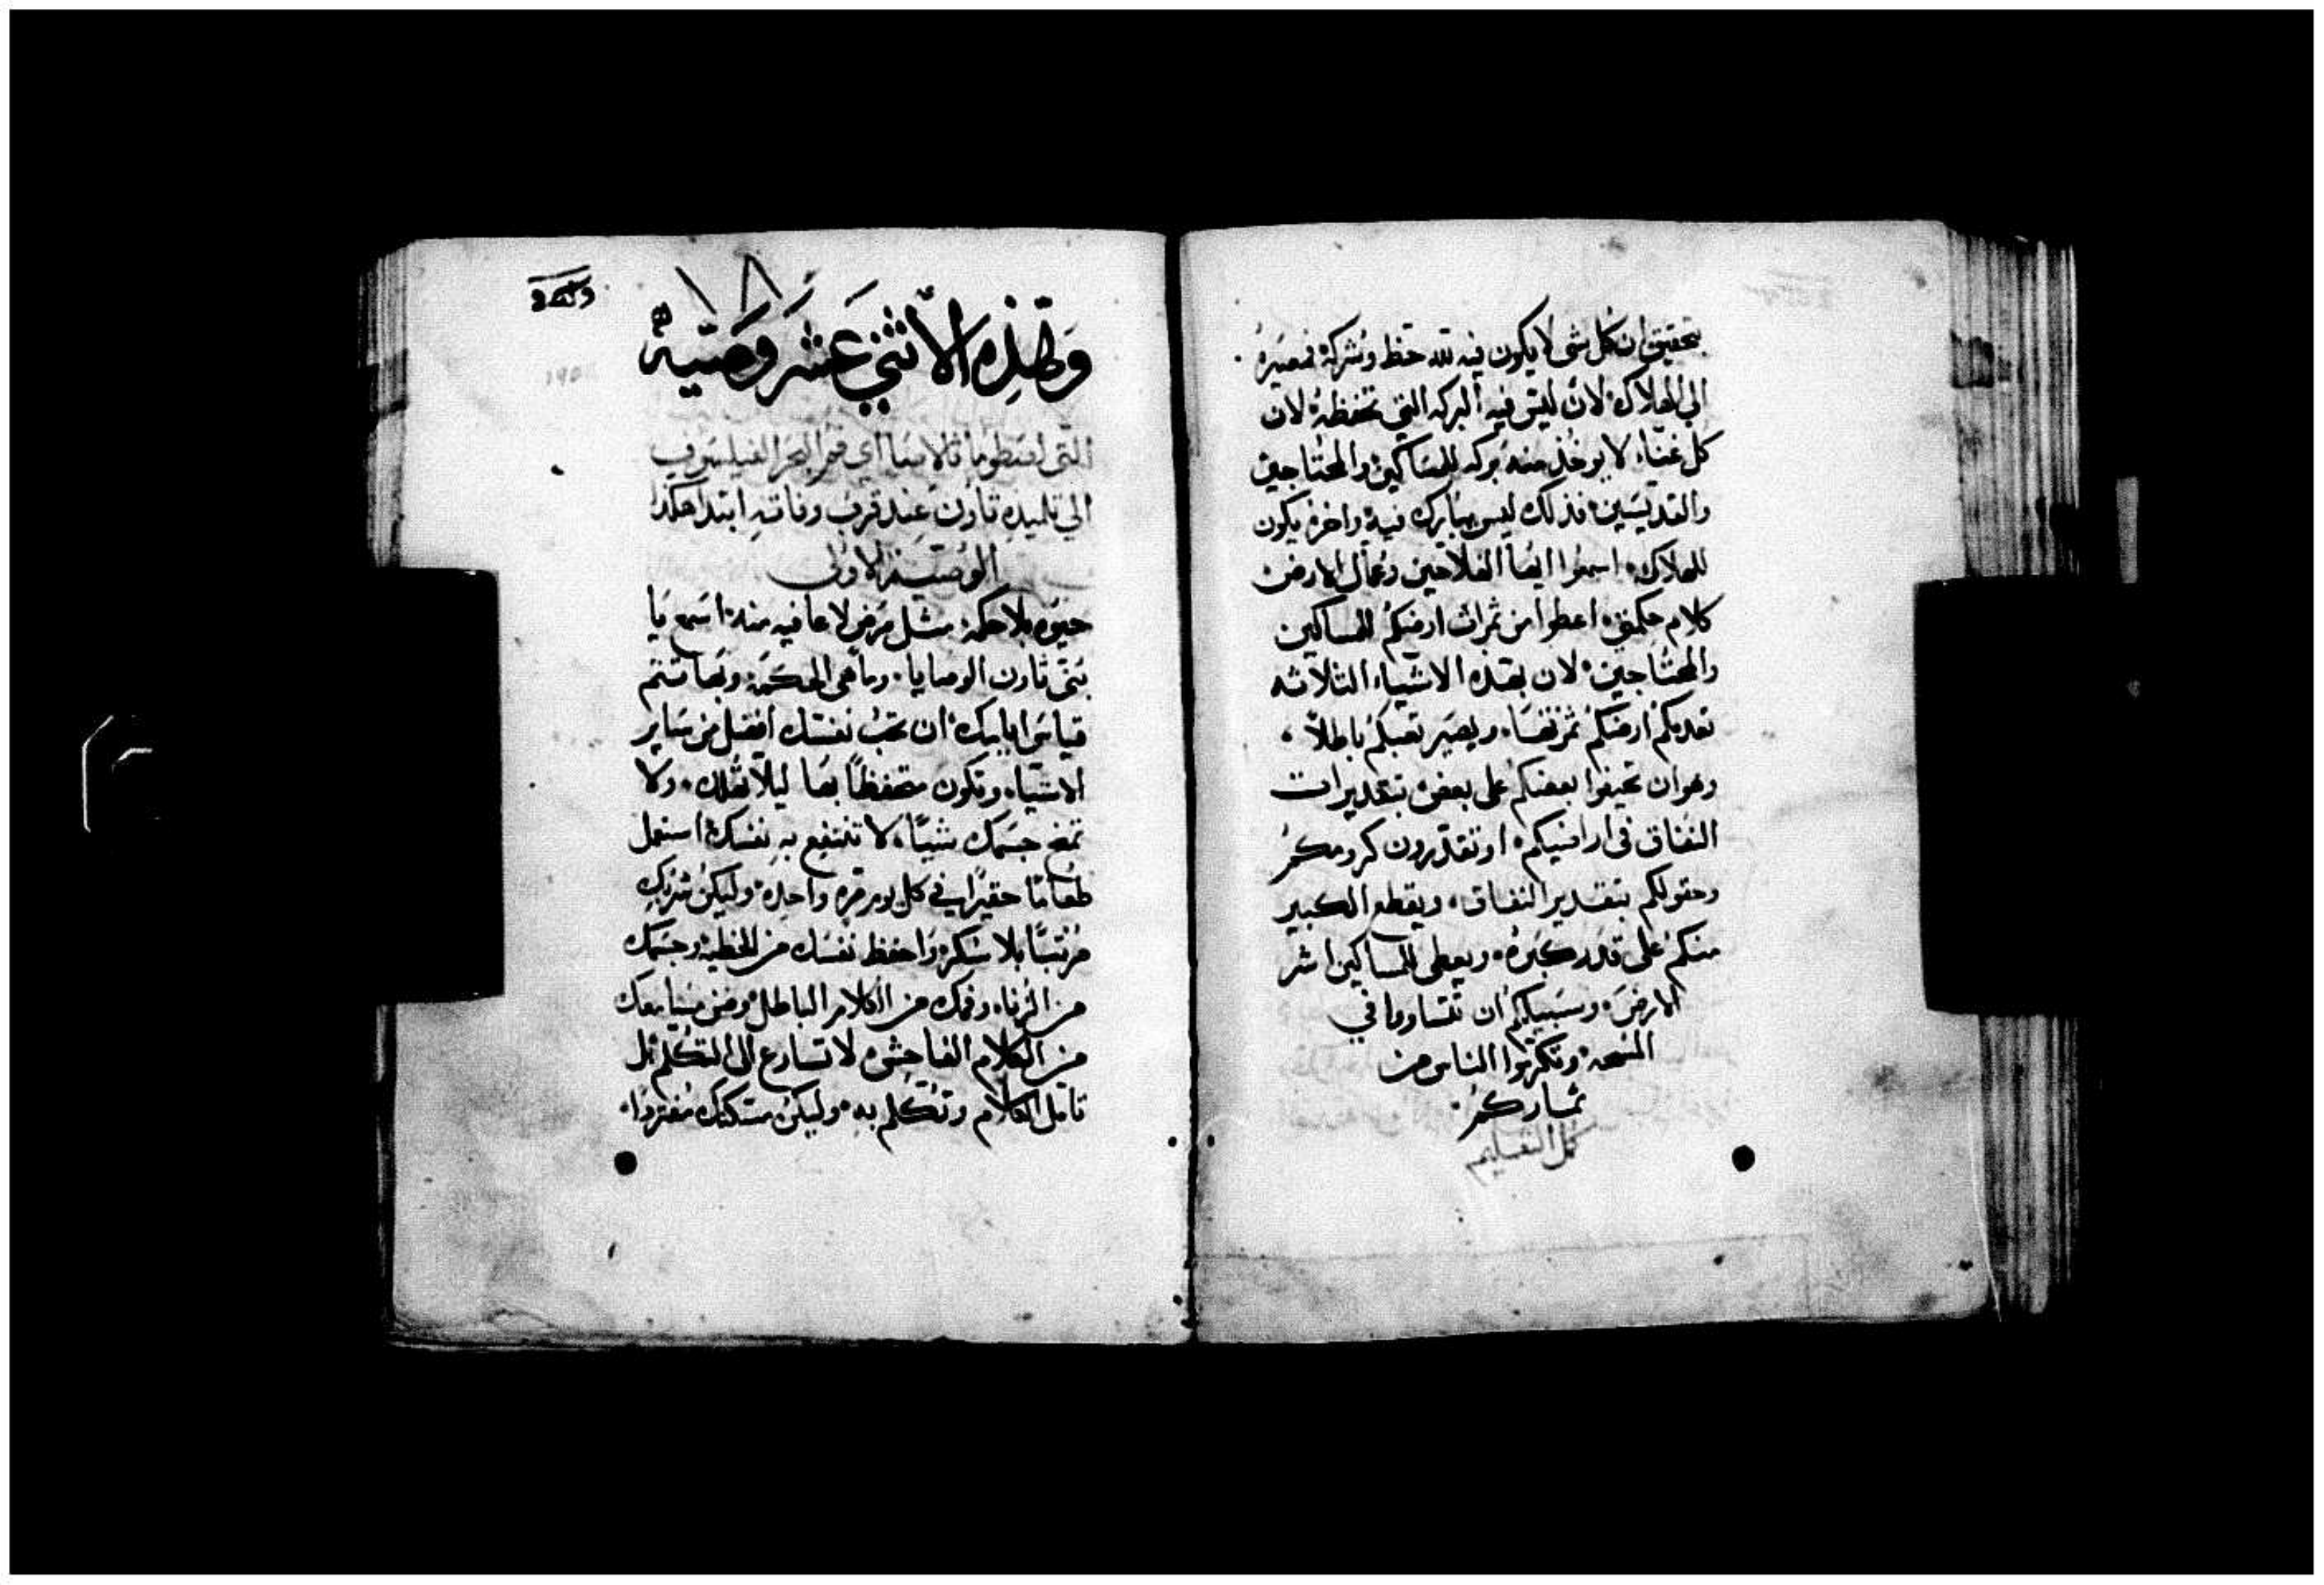 بتحقيق ان كل شى لا يكون فيه لله حظ وشركة فمصيره
الى الهلاك لان ليس فيه البركه التي تحفظه لان
كل غناء لا يوخذ منه بركه للمساكين والمحتاجين
والقديسين فذلك ليس يبارك فيه واخره يكون
للهلاك اسمعوا ايضا الفلاحين وعمال الارض
كلام حكمتي اعطوا من ثمرات ارضكم للمساكين
والمحتاجين لان بهذه الاشياء الثلاثه
تعدمكم ارضكم ثمرتها ويصير تعبكم باطلاً
وهو ان تحيفوا بعضكم على بعض بتقديرات
النفاق فى اراضيكم او تقدرون كرومكم
وحقولكم بتقدير النفاق ويقطع الكبير
منكم على قدر كبره ويعطى للمساكين اشر
الارض وسبيلكم ان تتساووا في
القسمه وتكرموا الناس من
ثماركم
كمل التعليم
وهذه الاثني عشر وصيه
التى
الي تلميذه تاون عند قرب وفاته ابتدا هكذا
الوصيه الاولى
حيوه بلا حكمة مثل مرض لا عافيه منه اسمع يا
بنى تاون الوصايا وما هى الحكمة وبها تتم
قياس ايامك ان تحب نفسك افضل من ساير
الاشياء وتكون متحفظاً بها ليلا تهلك ولا
تمنح جسمك شيئًا لا تنتفع به نفسك استعمل
طعامًا حقيرًا في كل يوم مره واحده وليكن شربك
مرتبًا بلا سكر واحفظ نفسك من الخطية وجسمك
من الزناء وفمك من الكلام الباطل ومسامعك
من الكلام الفاحش لا تسارع الى التكلم بل
تامل الكلام وتكلم به وليكن مسكنك مفردا